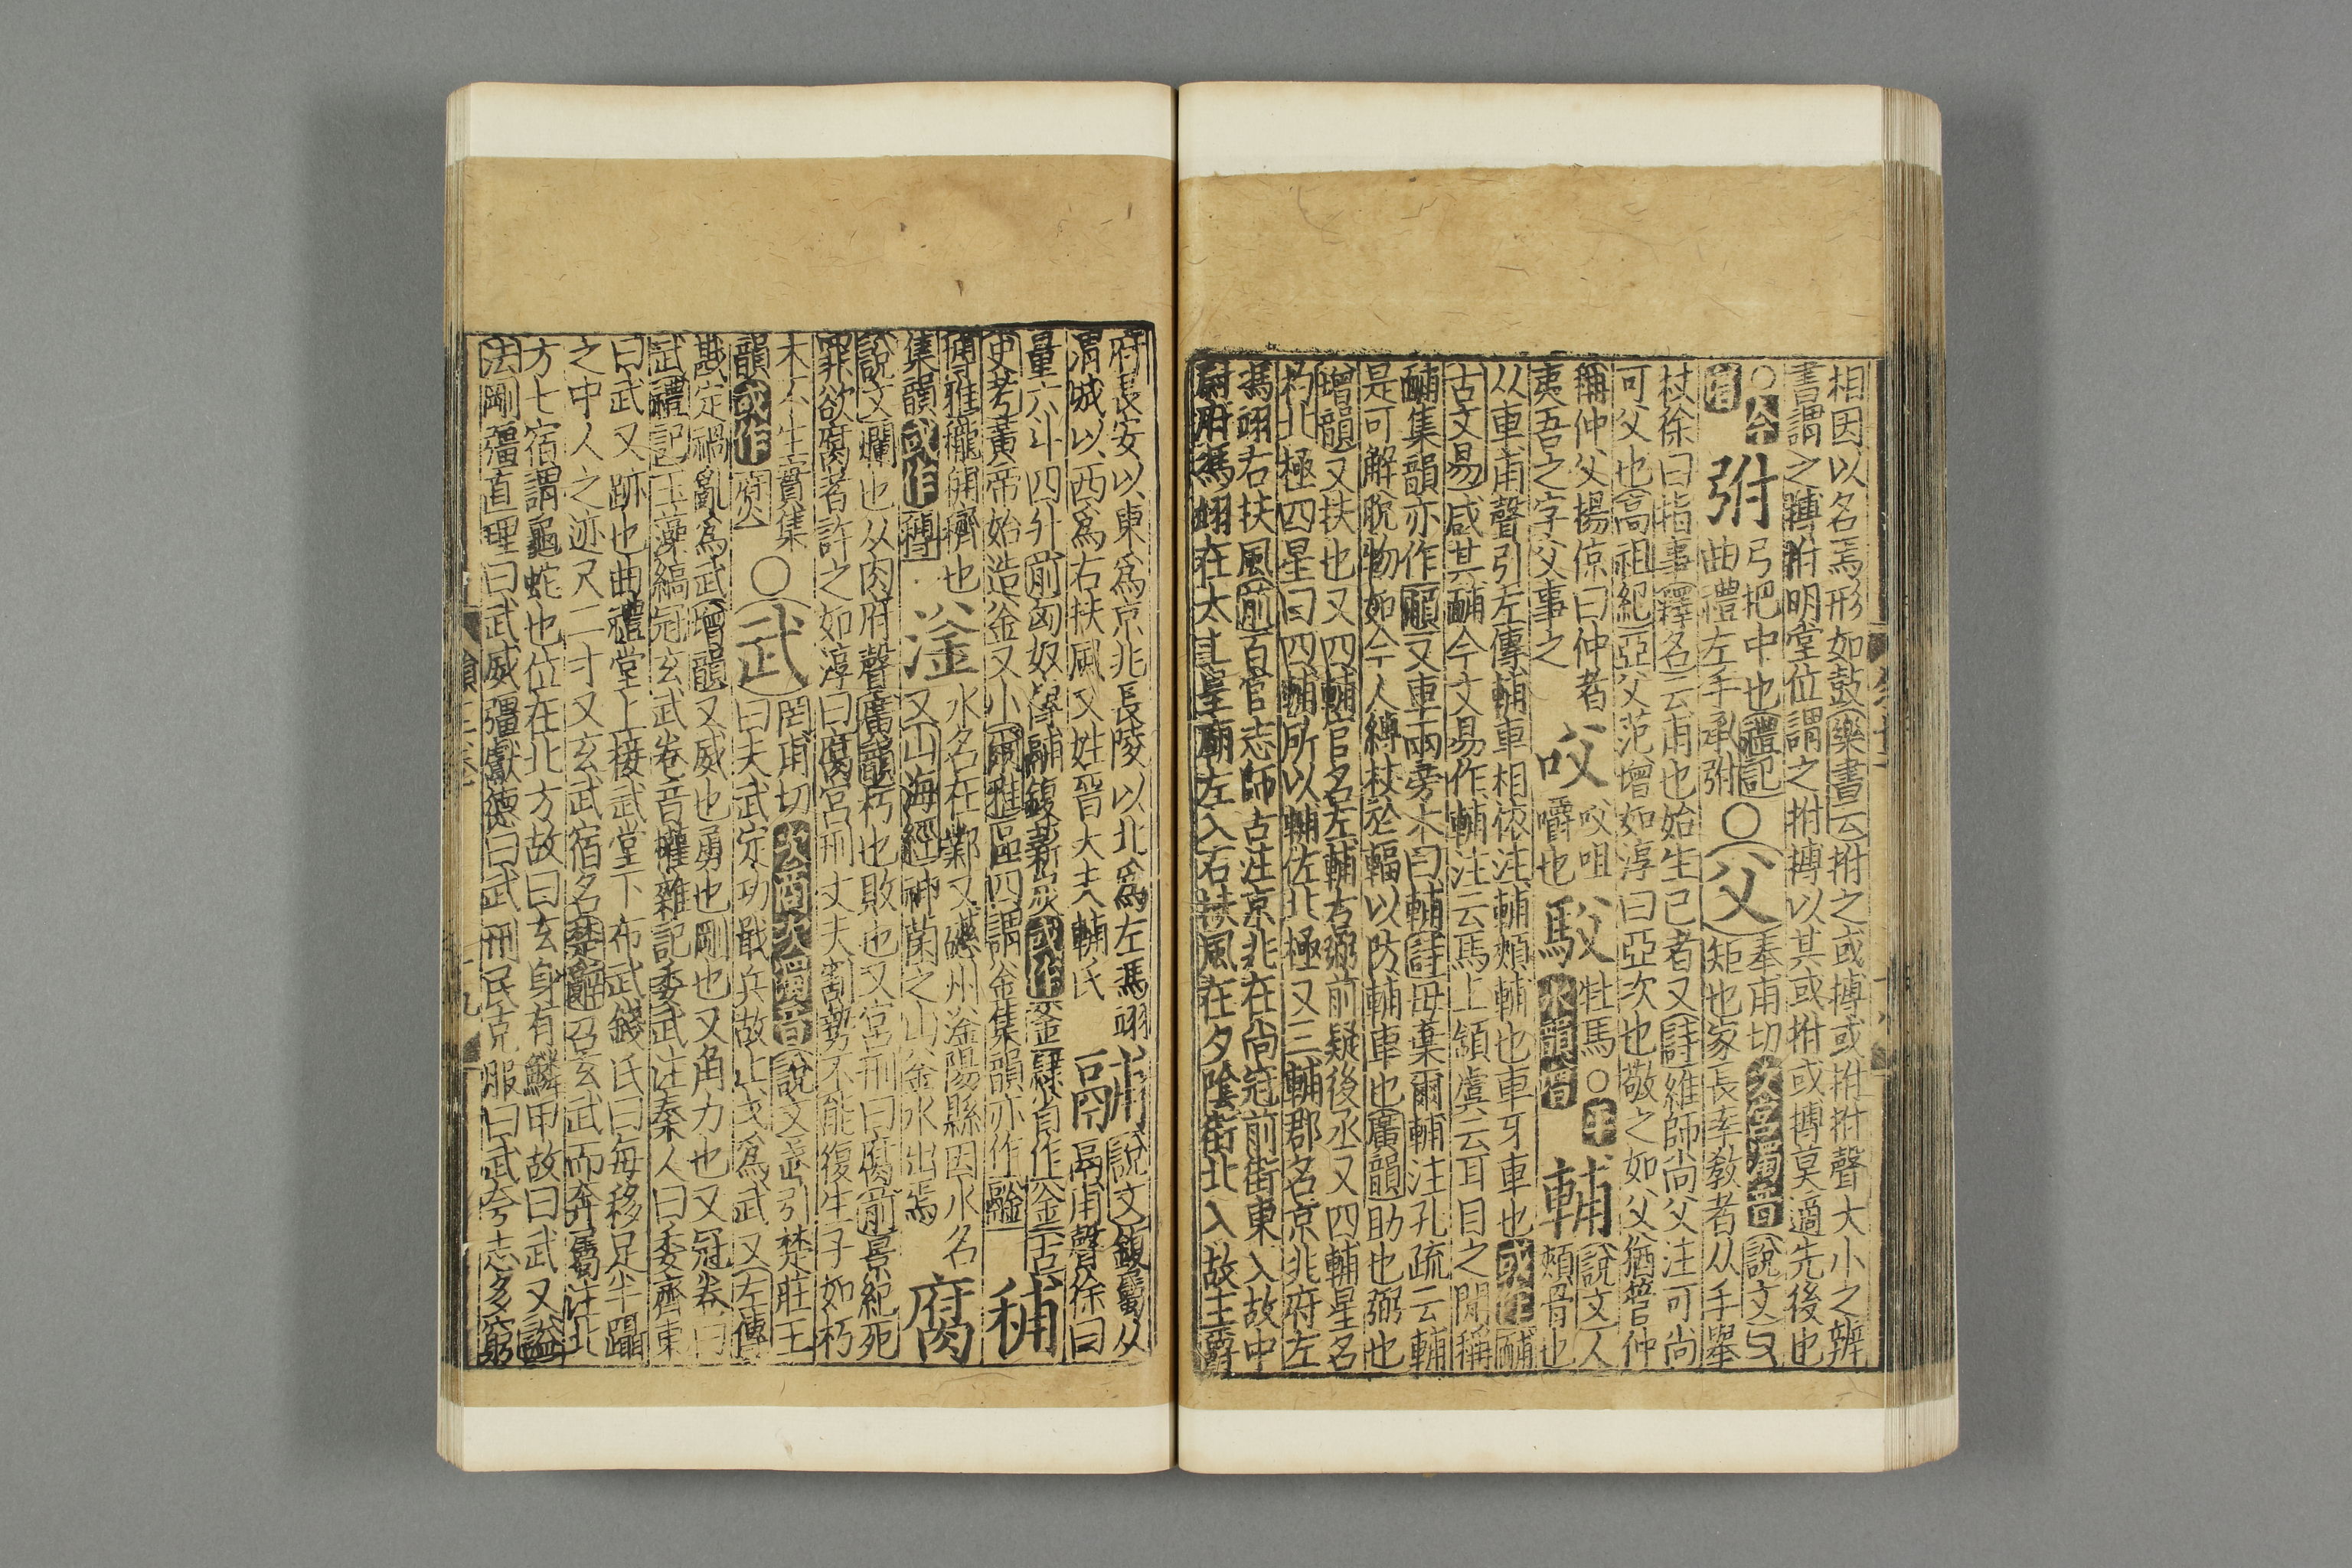 相因以名焉形如鼓樂書云拊之或搏或拊拊聲大小之辨
書謂之搏拊明堂位謂之拊搏以其或拊或搏莫適先後也
○今
增
弣
弓把中也禮記
曲禮左手承弣
○
父
奉甫切次宮濁音說文又
矩也家長率教者从手舉
杖徐曰指事釋名云甫也始生已者又詩維師尚父注可尚
可父也高祖紀亞父范增如淳曰亞次也敬之如父猶管仲
稱仲父揚倞曰仲者
夷吾之字父事之
㕮
㕮咀
嚼也
䮛
牡馬○平
水韻增
輔
說文人
頰骨也
从車甫聲引左傳輔車相依注輔頰輔也車牙車也或作䩉
古文易咸其䩉今文易作輔注云馬上頷虞云耳目之間稱
䩉集韻亦作䫍又車兩旁木曰輔詩毋棄爾輔注孔疏云輔
是可解脫物如今人縛杖於輻以防輔車也廣韻助也弼也
增韻又扶也又四輔官名左輔右弼前疑後丞又四輔星名
杓北極四星曰四輔所以輔佐北極又三輔郡名京兆府左
馮翊右扶風前百官志師古注京兆在尚冠前街東入故中
尉府馮翊在太上皇廟左入右扶風在夕陰街北入故主爵
府長安以東為京兆長陵以北為左馮翊
渭城以西為右扶風又姓晉大夫輔氏
鬴
說文鍑屬从
鬲甫聲徐曰
量六斗四升前匈奴傳鬴鍑薪炭或作釜䥣省作釜古
史考黃帝始造釜又小爾雅區四謂釜集韻亦作䥣
䅭
博雅䅭䄪穧也
集韻或作䅭
滏
水名在鄴又磁州滏陽縣因水名
又山海經神菌之山滏水出焉
腐
說文爛也从肉府聲廣韻朽也敗也又宮刑曰腐前景紀死
罪欲腐者許之如淳曰腐宮刑丈夫割勢不能復生子如朽
木不生實集
韻或作㾈
○
武
罔甫切次宮商次濁音說文武引楚莊王
曰夫武定功戢兵故止戈為武又左傳
戡定禍亂為武增韻又威也勇也剛也又角力也又冠卷曰
武禮記玉藻縞冠玄武卷音權雜記委武注秦人曰委齊東
曰武又跡也曲禮堂上接武堂下布武錢氏曰每移足半躡
之中人之迹尺二寸又玄武宿名楚辭召玄武而奔屬注北
方七宿謂龜蛇也位在北方故曰玄身有鱗甲故曰武又謚
法剛彊直理曰武威彊叡德曰武刑民克服曰武夸志多窮